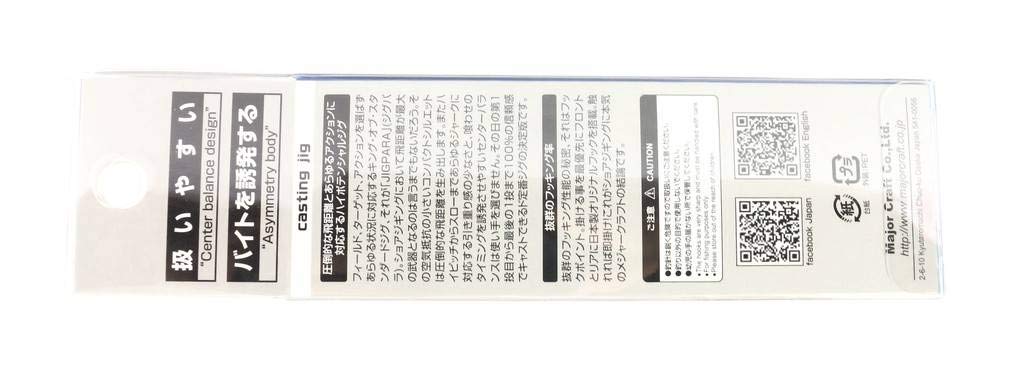 扱いやすい
"Center balance design"
バイトを誘発する
"Asymmetry body"
casting jig
圧倒的な飛距離とあらゆるアクションに
対応するハイポテンシャルジグ
フィールド、ターゲット、アクションを選ばず
あらゆる状況に対応するキング・オブ・スタ
ンダードジグ、それが「JIGPARA」(ジグパ
ラ)。ショアジギングにおいて飛距離が最大
の武器となるのは言うまでもないだろう。そ
の空気抵抗の小さいコンパクトシルエット
は圧倒的な飛距離を生み出します。またハ
イピッチからスローまであらゆるジャークに
対応する引き重り感の少なさと、喰わせの
タイミングを誘発させやすいセンターバラ
ンスは使い手を選びません。その日の第1
投目から最後の1投まで100%の信頼感
でキャストできるド定番ジグの決定版です。
抜群のフッキング率
抜群のフッキング性能の秘密、それはフッ
クポイント、掛ける事を最優先にフロント
とリアに日本製オリジナルフックを搭載。触
れれば即掛け!これがショアジギングに本気
のメジャークラフトの結論です。
ご注意 ⚠ CAUTION
●釣針は鋭く危険ですので取扱いにご注意ください。
●釣り以外の目的で使用しないでください。
●幼児の手の届かない所で保管してください。
●The hooks are very sharp
●For fishing purposes only.
●Please store out of the reach of children.
facebook Japan
facebook English
紙
台紙
プラ
外袋:PET
Major Craft Co.,Ltd.
http://www.majorcraft.co.jp
2-6-10 Kyutaromachi Chuo-ku Osaka Japan 541-0056